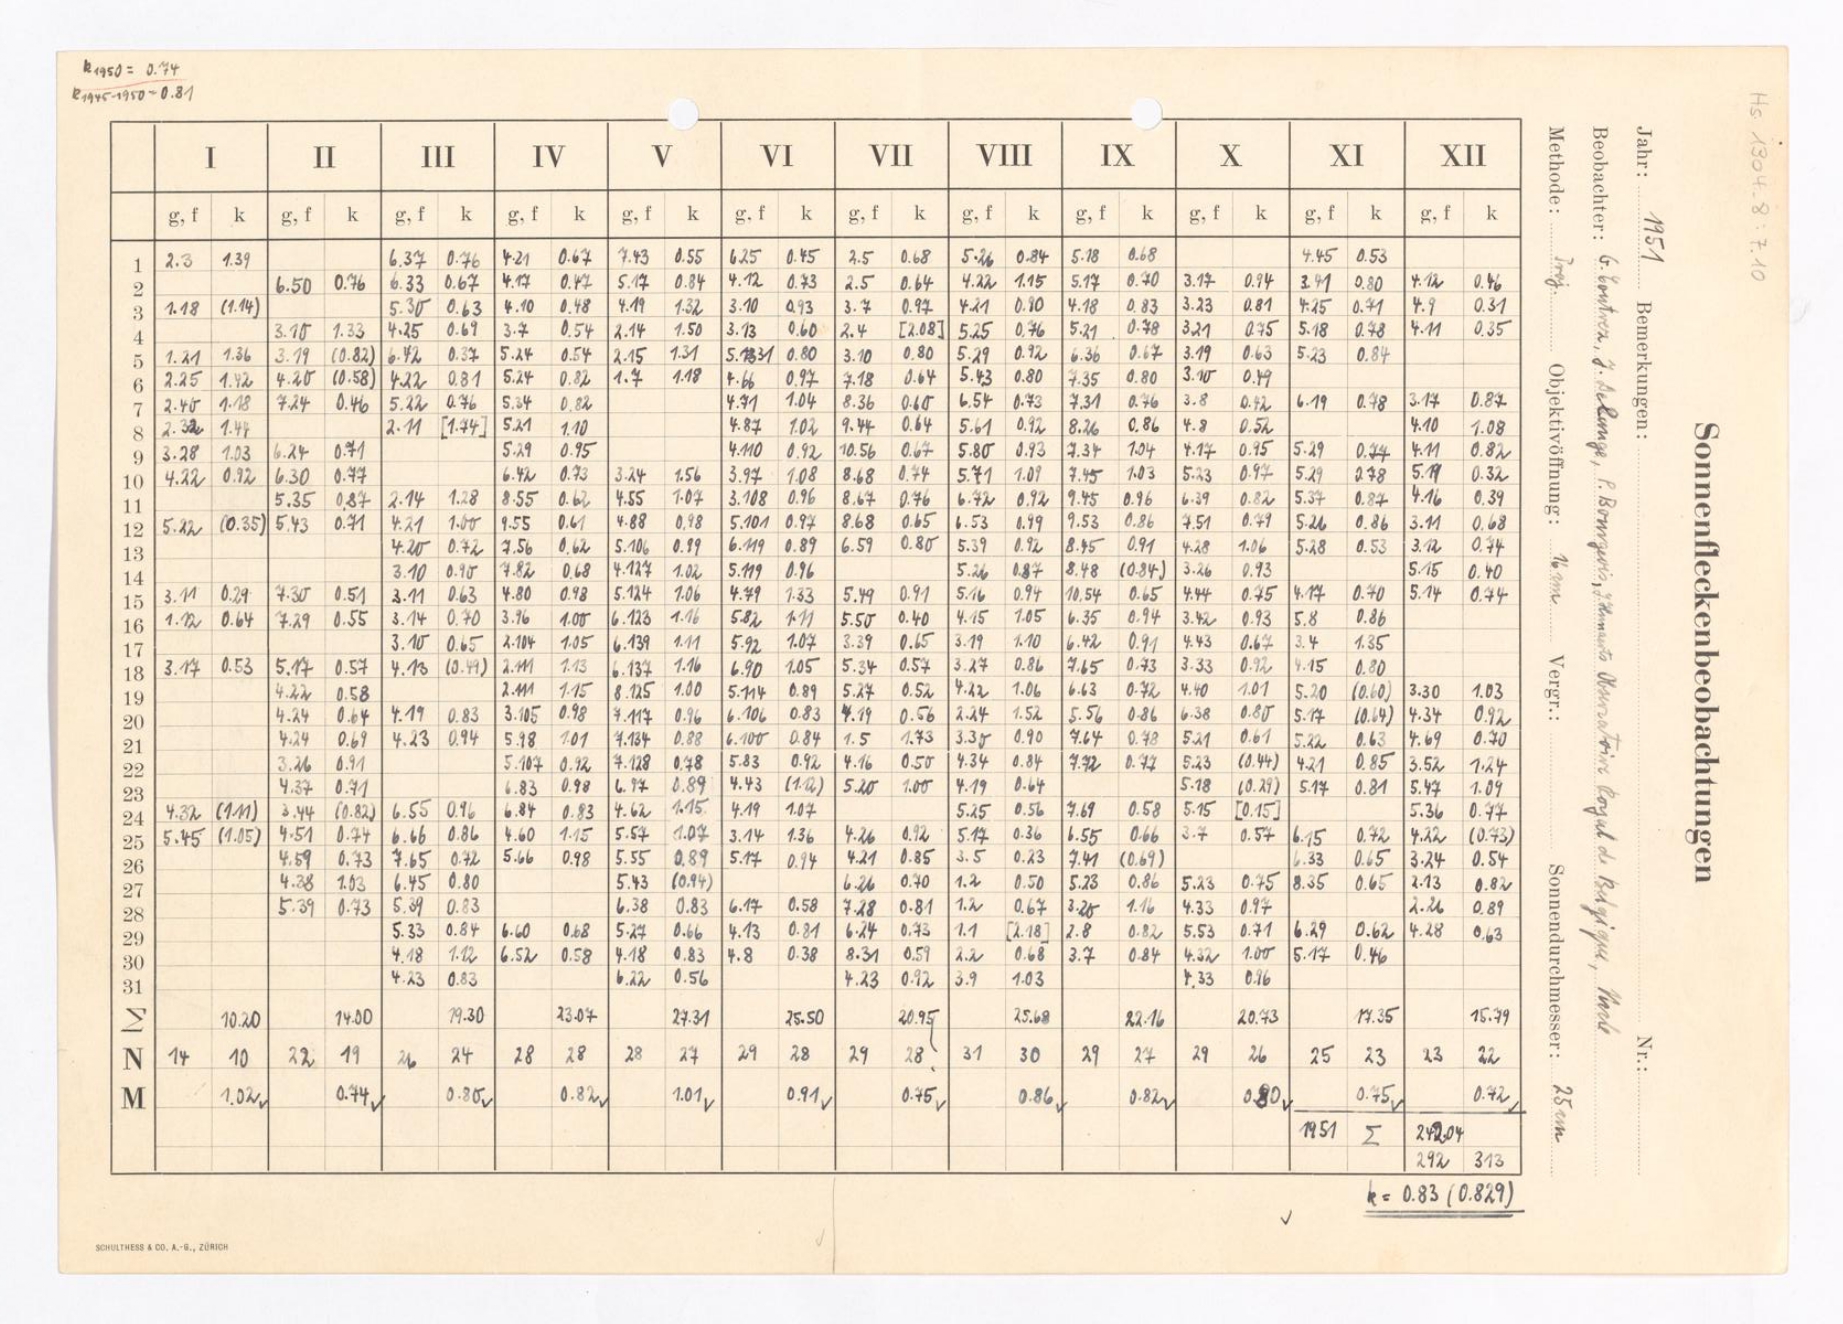 k1950 = 0.74
k1945-1950 = 0.81
Hs 1304.8:7.10
Sonnenfleckenbeobachtungen
Jahr: 1951 Bemerkungen: Nr.:
Beobachter: Observatoire Royal de Belgique, Uccle
Methode: Proj. Objektivöffnung: 16 cm Vergr.: Sonnendurchmesser: 25 cm
I II III IV V VI VII VIII IX X XI XII
g, f k g, f k g, f k g, f k g, f k g, f k g, f k g, f k g, f k g, f k g, f k g, f k
1 2.3 1.39 6.37 0.76 4.21 0.67 7.43 0.55 6.25 0.45 2.5 0.68 5.26 0.84 5.18 0.68 4.45 0.53
2 6.50 0.76 6.33 0.67 4.17 0.47 5.17 0.84 4.12 0.73 2.5 0.64 4.22 1.15 5.17 0.70 3.17 0.94 3.41 0.80 4.12 0.46
3 1.18 (1.14) 5.30 0.63 4.10 0.48 4.19 1.32 3.10 0.93 3.7 0.97 4.21 0.90 4.18 0.83 3.23 0.81 4.25 0.71 4.9 0.31
4 3.10 1.33 4.25 0.69 3.7 0.54 2.14 1.50 3.13 0.60 2.4 [2.08] 5.25 0.76 5.21 0.78 3.21 0.75 5.18 0.78 4.11 0.35
5 1.21 1.36 3.19 (0.82) 6.42 0.37 5.24 0.54 2.15 1.31 0.80 3.10 0.80 5.29 0.92 6.36 0.67 3.19 0.63 5.23 0.84
6 2.25 1.42 4.20 (0.58) 4.22 0.81 5.24 0.82 1.7 1.18 4.66 0.97 7.18 0.64 5.43 0.80 7.35 0.80 3.10 0.49
7 2.40 1.18 7.24 0.46 5.22 0.76 5.34 0.82 4.71 1.04 8.36 0.60 6.54 0.73 7.31 0.76 3.8 0.42 6.19 0.78 3.17 0.87
8 2.32 1.44 2.11 [1.74] 5.21 1.10 4.87 1.02 9.44 0.64 5.61 0.92 8.26 0.86 4.8 0.52 4.10 1.08
9 3.28 1.03 6.24 0.71 5.29 0.95 4.110 0.92 10.56 0.67 5.80 0.93 7.34 1.04 4.17 0.95 5.29 0.74 4.11 0.82
10 4.22 0.92 6.30 0.77 6.42 0.73 3.24 1.56 3.97 1.08 8.68 0.74 5.71 1.09 7.45 1.03 5.23 0.97 5.29 0.78 5.19 0.32
11 5.35 0.87 2.14 1.28 8.55 0.62 4.55 1.07 3.108 0.96 8.67 0.76 6.72 0.92 9.45 0.96 6.39 0.82 5.37 0.87 4.16 0.39
12 5.22 (0.35) 5.43 0.71 4.21 1.00 9.55 0.61 4.88 0.98 5.101 0.97 8.68 0.65 6.53 0.99 9.53 0.86 7.51 0.79 5.26 0.86 3.11 0.68
13 4.20 0.72 7.56 0.62 5.106 0.99 6.119 0.89 6.59 0.80 5.39 0.92 8.45 0.91 4.28 1.06 5.28 0.53 3.12 0.74
14 3.10 0.90 7.82 0.68 4.127 1.02 5.119 0.96 5.26 0.87 8.48 (0.84) 3.26 0.93 5.15 0.40
15 3.11 0.29 7.30 0.51 3.11 0.63 4.80 0.98 5.124 1.06 4.79 1.33 5.49 0.91 5.16 0.94 10.54 0.65 4.44 0.75 4.17 0.70 5.14 0.74
16 1.12 0.64 7.29 0.55 3.14 0.70 3.96 1.00 6.123 1.16 5.82 1.11 5.50 0.40 4.15 1.05 6.35 0.94 3.42 0.93 5.8 0.86
17 3.10 0.65 2.104 1.05 6.139 1.11 5.92 1.07 3.39 0.65 3.19 1.10 6.42 0.91 4.43 0.67 3.4 1.35
18 3.17 0.53 5.17 0.57 4.13 (0.49) 2.111 1.13 6.137 1.16 6.90 1.05 5.34 0.57 3.27 0.86 7.65 0.73 3.33 0.92 4.15 0.80
19 4.22 0.58 2.111 1.15 8.125 1.00 5.114 0.89 5.27 0.52 4.22 1.06 6.63 0.72 4.40 1.01 5.20 (0.60) 3.30 1.03
20 4.24 0.64 4.19 0.83 3.105 0.98 7.117 0.96 6.106 0.83 4.19 0.56 2.24 1.52 5.56 0.86 6.38 0.80 5.17 (0.64) 4.34 0.92
21 4.24 0.69 4.23 0.94 5.98 1.01 7.134 0.88 6.100 0.84 1.5 1.73 3.30 0.90 7.64 0.78 5.21 0.61 5.22 0.63 4.69 0.70
22 3.26 0.91 5.107 0.92 7.128 0.78 5.83 0.92 4.16 0.50 4.34 0.84 7.72 0.77 5.23 (0.44) 4.21 0.85 3.52 1.24
23 4.37 0.71 6.83 0.98 6.97 0.89 4.43 (1.12) 5.20 1.00 4.19 0.64 5.18 (0.29) 5.17 0.81 5.47 1.09
24 4.32 (1.11) 3.44 (0.82) 6.55 0.96 6.84 0.83 4.62 1.15 4.19 1.07 5.25 0.56 7.69 0.58 5.15 [0.15] 5.36 0.77
25 5.45 (1.05) 4.51 0.74 6.66 0.86 4.60 1.15 5.57 1.07 3.14 1.36 4.26 0.92 5.17 0.36 6.55 0.66 3.7 0.57 6.15 0.72 4.22 (0.73)
26 4.59 0.73 7.65 0.72 5.66 0.98 5.55 0.89 5.17 0.94 4.21 0.85 3.5 0.23 7.41 (0.69) 6.33 0.65 3.24 0.54
27 4.38 1.03 6.45 0.80 5.43 (0.94) 6.26 0.70 1.2 0.50 5.23 0.86 5.23 0.75 8.35 0.65 2.13 0.82
28 5.39 0.73 5.39 0.83 6.38 0.83 6.17 0.58 7.28 0.81 1.2 0.67 3.20 1.16 4.33 0.97 2.26 0.89
29 5.33 0.84 6.60 0.68 5.27 0.66 4.13 0.81 6.24 0.73 1.1 [2.18] 2.8 0.82 5.53 0.71 6.29 0.62 4.28 0.63
30 4.18 1.12 6.52 0.58 4.18 0.83 4.8 0.38 8.31 0.59 2.2 0.68 3.7 0.84 4.32 1.00 5.17 0.46
31 4.23 0.83 6.22 0.56 4.23 0.92 3.9 1.03 4.33 0.96
Σ 10.20 14.00 19.30 23.07 27.31 25.50 20.95 25.68 22.16 20.73 17.35 15.79
N 14 10 22 19 26 24 28 28 28 27 29 28 29 28 31 30 29 27 29 26 25 23 23 22
M 1.02 0.74 0.80 0.82 1.01 0.91 0.75 0.86 0.82 0.80 0.75 0.72
1951 Σ 242.04
292 313
k = 0.83 (0.829)
SCHULTHESS & CO. A.-G., ZÜRICH